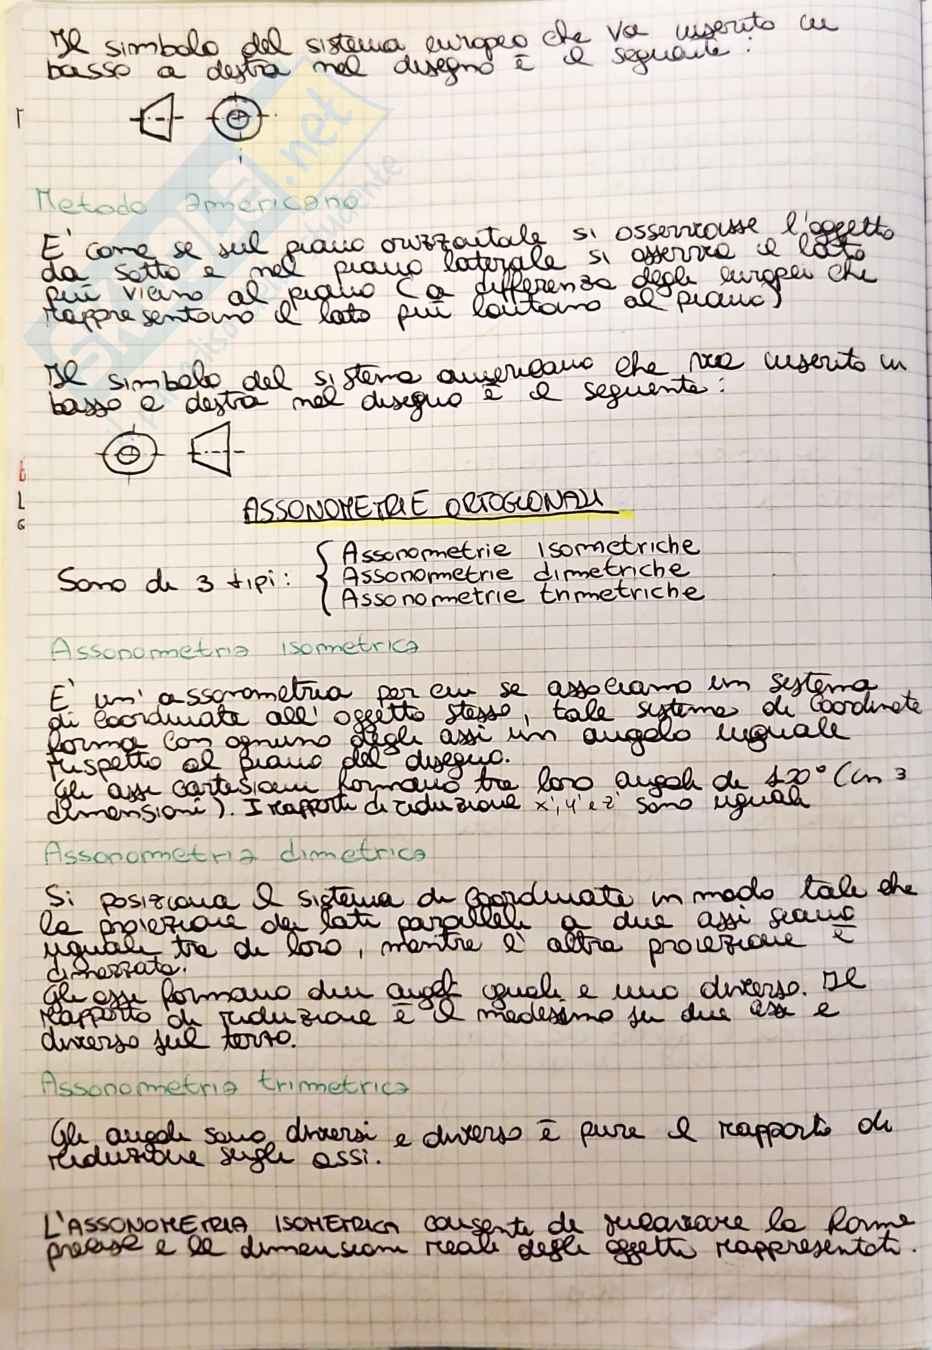 Il simbolo del sistema europeo che va inserito in
basso a destra nel disegno è il seguente:
Metodo americano
E' come se sul piano orizzontale si osservasse l'oggetto
da sotto e nel piano laterale si osserva il lato
più vicino al piano (a differenza degli europei che
rappresentano il lato più lontano al piano)
Il simbolo del sistema americano che va inserito in
basso a destra nel disegno è il seguente:
ASSONOMETRIE ORTOGONALI
Sono di 3 tipi:
Assonometrie isometriche
Assonometrie dimetriche
Assonometrie trimetriche
Assonometria isometrica
E' un'assonometria per cui se associamo un sistema
di coordinate all'oggetto stesso, tale sistema di coordinate
forma con ognuno degli assi un angolo uguale
rispetto al piano del disegno.
Gli assi cartesiani formano tra loro angoli di 120° (in 3
dimensioni). I rapporti di riduzione x', y' e z' sono uguali
Assonometria dimetrica
Si posiziona il sistema di coordinate in modo tale che
la proiezione dei lati paralleli a due assi siano
uguali tra di loro, mentre l'altra proiezione è
dimezzata.
Gli assi formano due angoli uguali e uno diverso. Il
rapporto di riduzione è il medesimo su due assi e
diverso sul terzo.
Assonometria trimetrica
Gli angoli sono diversi e diverso è pure il rapporto di
riduzione sugli assi.
L'ASSONOMETRIA ISOMETRICA consente di ricavare le forme
precise e le dimensioni reali degli oggetti rappresentati.